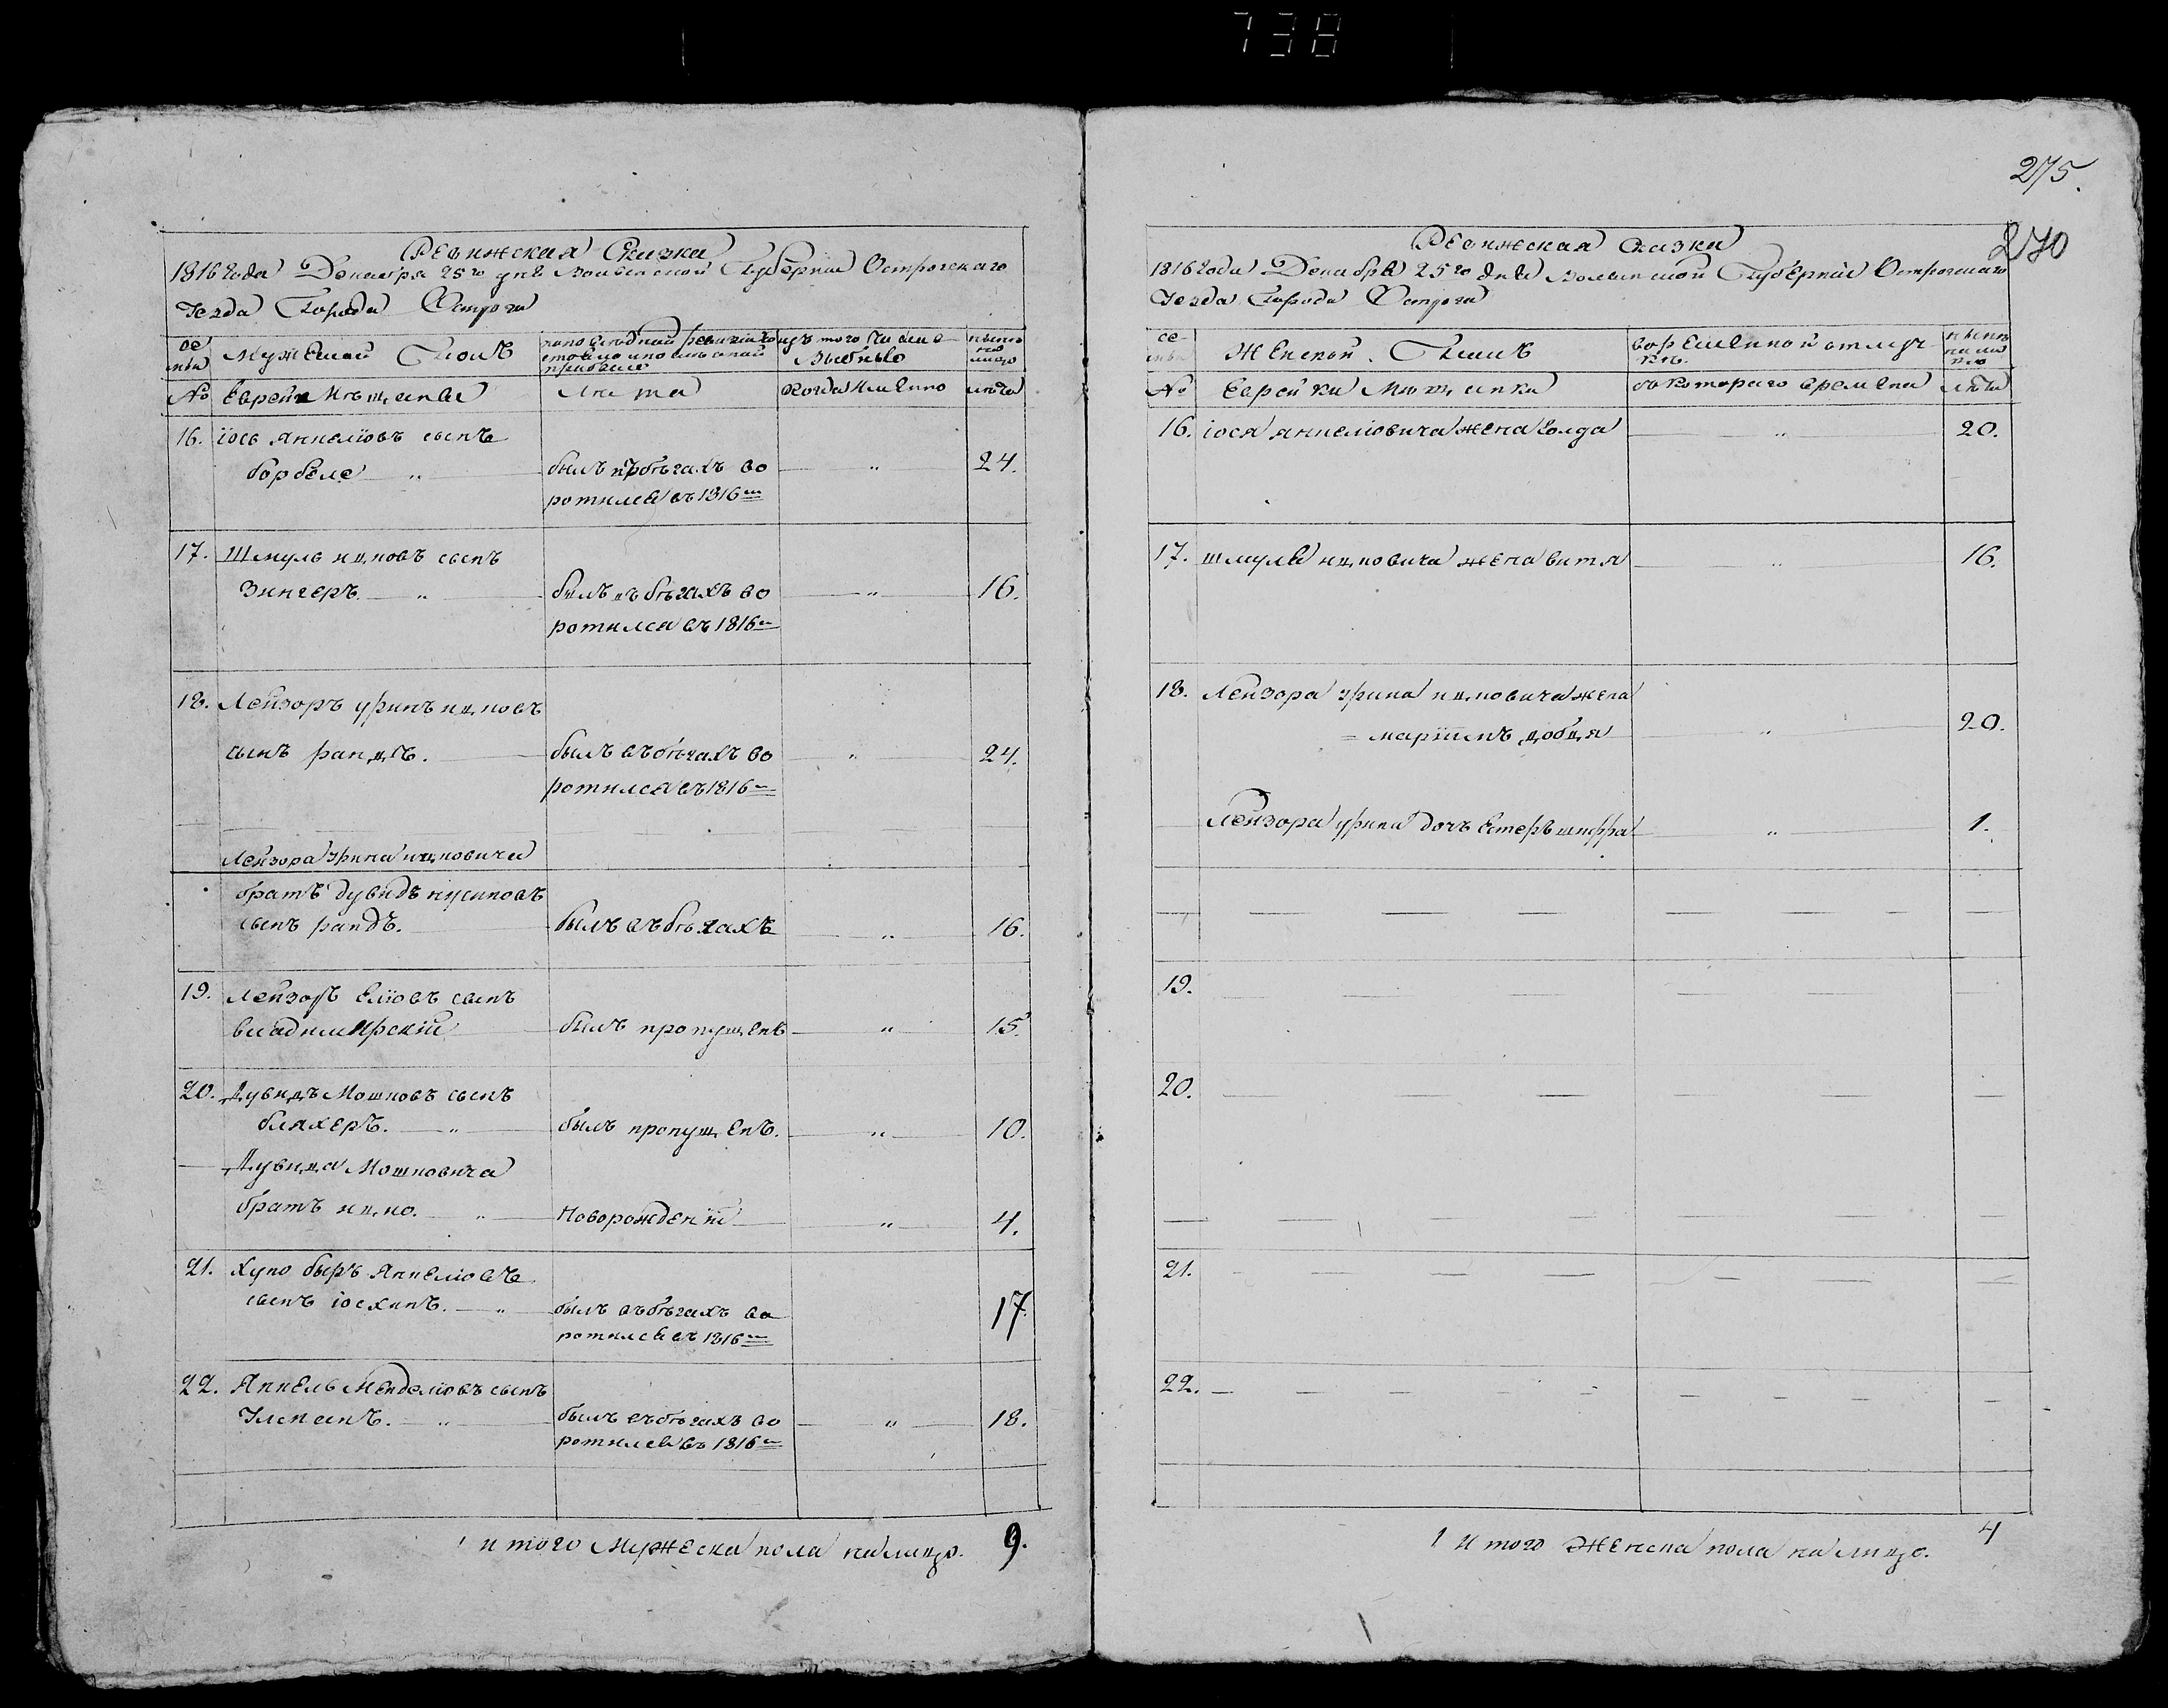 738
Ревижская Сказка
1816 года Декабря 25го дня Волынской Губернии Острогского
Уезда Города Острога
семьи
Мужеской Полъ
изъ того числа
выбыло
ныне на лицо
№ Евреи Мещане
Лета
Когда имянно
лета
16. Іось Янкеліовъ сынъ
борбеле „
былъ въ бегахъ во „ 24.
ротился въ 1816м
17. Шмуль ицковъ сынъ
Зингеръ „ былъ въ бегахъ во „ 16.
ротился въ 1816м
18. Лейзоръ уринъ ицковъ
сынъ рандъ. былъ въ бегахъ во „ 24.
ротился въ 1816м
Лейзора урина ицковича
братъ дувидъ
сынъ рандъ. былъ въ бегахъ „ 16.
19. Лейзоръ Еліовъ сынъ
владимирскій былъ пропущенъ „ 15.
20. Дувидъ Мошковъ сынъ
бляхеръ. „ былъ пропущенъ. „ 10.
Дувида Мошковича
братъ ицко. „ Новорожденій „ 4.
21. Хуно быръ Янкеліовъ
сынъ іосхинъ. „ былъ въ бегахъ во 17.
ротился въ 1816м
22. Янкель Менделіовъ сынъ
былъ въ бегахъ во „ 18.
ротился въ 1816м
итого Мужеска пола на лицо. 9.
275.
270
Ревижская сказка
1816 года Декабря 25го дня Волынской Губерніи Острогскаго
Уезда Города Острога
семьи
Женской Полъ
во временной отлуч
ке.
ныне на ли
цо
№ Еврейки Мещанки съ котораго времени лета
16. іося янкеліовича жена голда „ 20.
17. шмуля ицковича жена витя „ 16.
18. Лейзора урина ицковича жена
маріимъ добця „ 20.
Лейзора урина дочь Естеръ шифра „ 1.
19.
20.
21.
22.
Итого Женска пола на лицо. 4